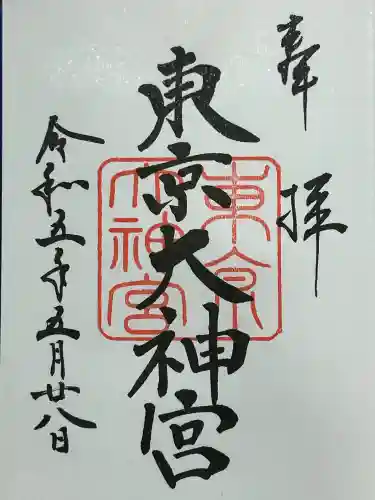 奉拝
東京大神宮
東京大神宮
令和五年五月廿八日